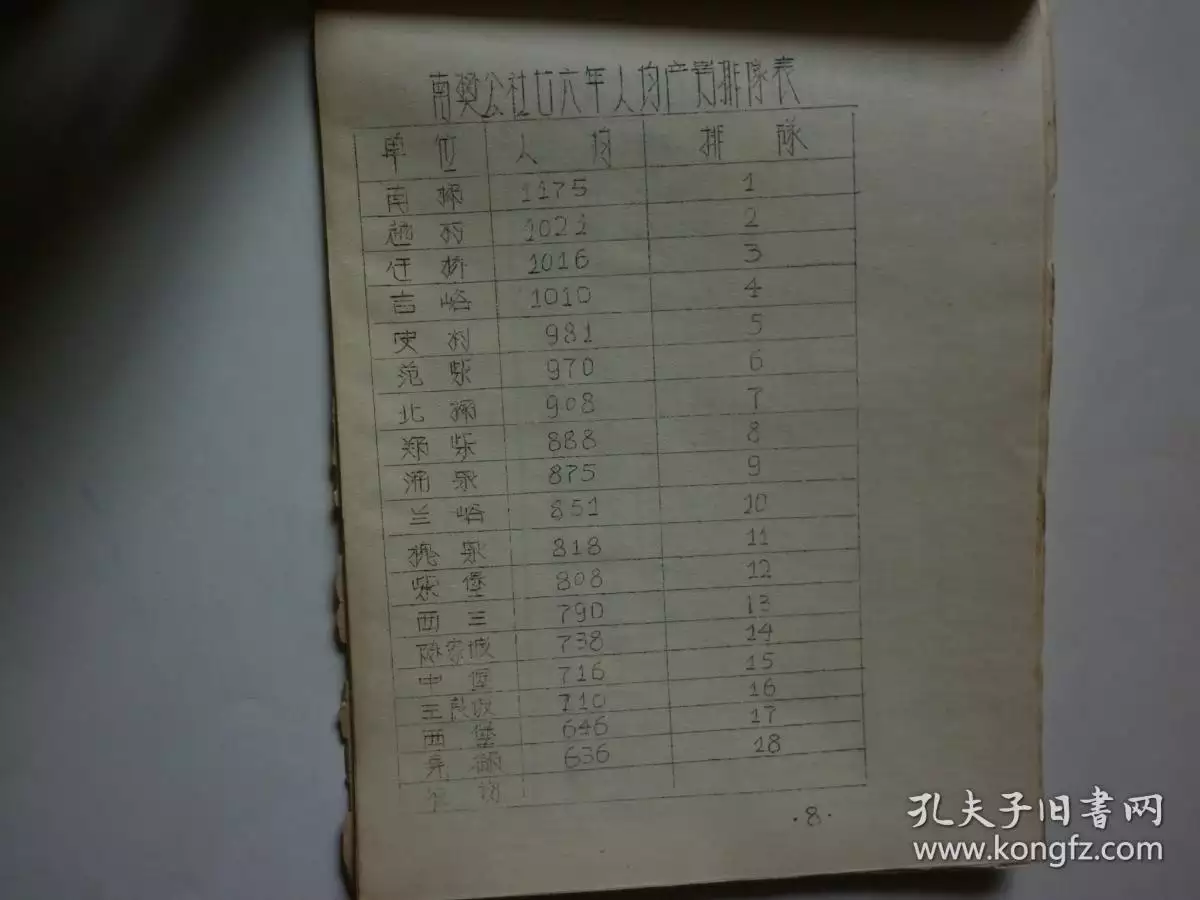 南樊公社七六年人均产量排隊表
单位 人均 排隊
南樊 1175 1
1021 2
迁桥 1016 3
吉峪 1010 4
史村 981 5
范柴 970 6
北 908 7
郑柴 888 8
涌泉 875 9
兰峪 851 10
槐泉 818 11
柴堡 808 12
西三 790 13
陈家城 738 14
中堡 716 15
710 16
西堡 646 17
636 18
平均
·8·
孔夫子旧书网
www.kongfz.com